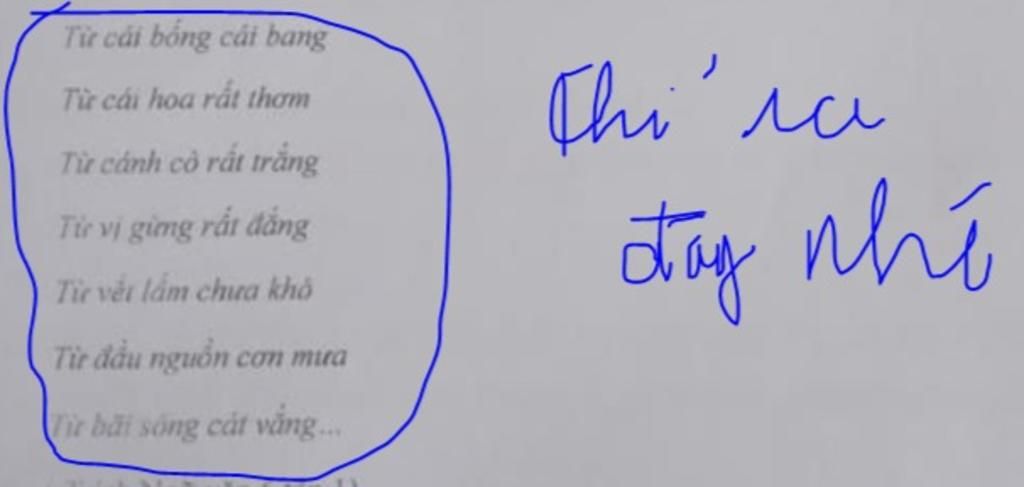 Từ cái bống cái bang
Từ cái hoa rất thơm
Từ cánh cò rất trắng
Từ vị gừng rất đắng
Từ vết lấm chưa khô
Từ đầu nguồn cơn mưa
Từ bãi sông cát vắng...
Chỉ ra
đay nhé